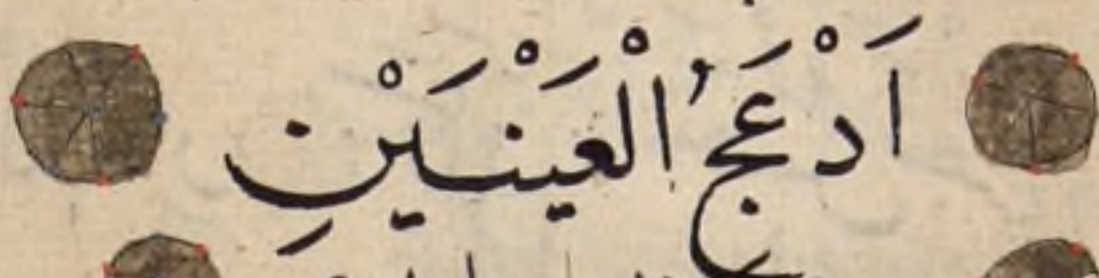 اَدْعَجُ الْعَيْنَيْنِ